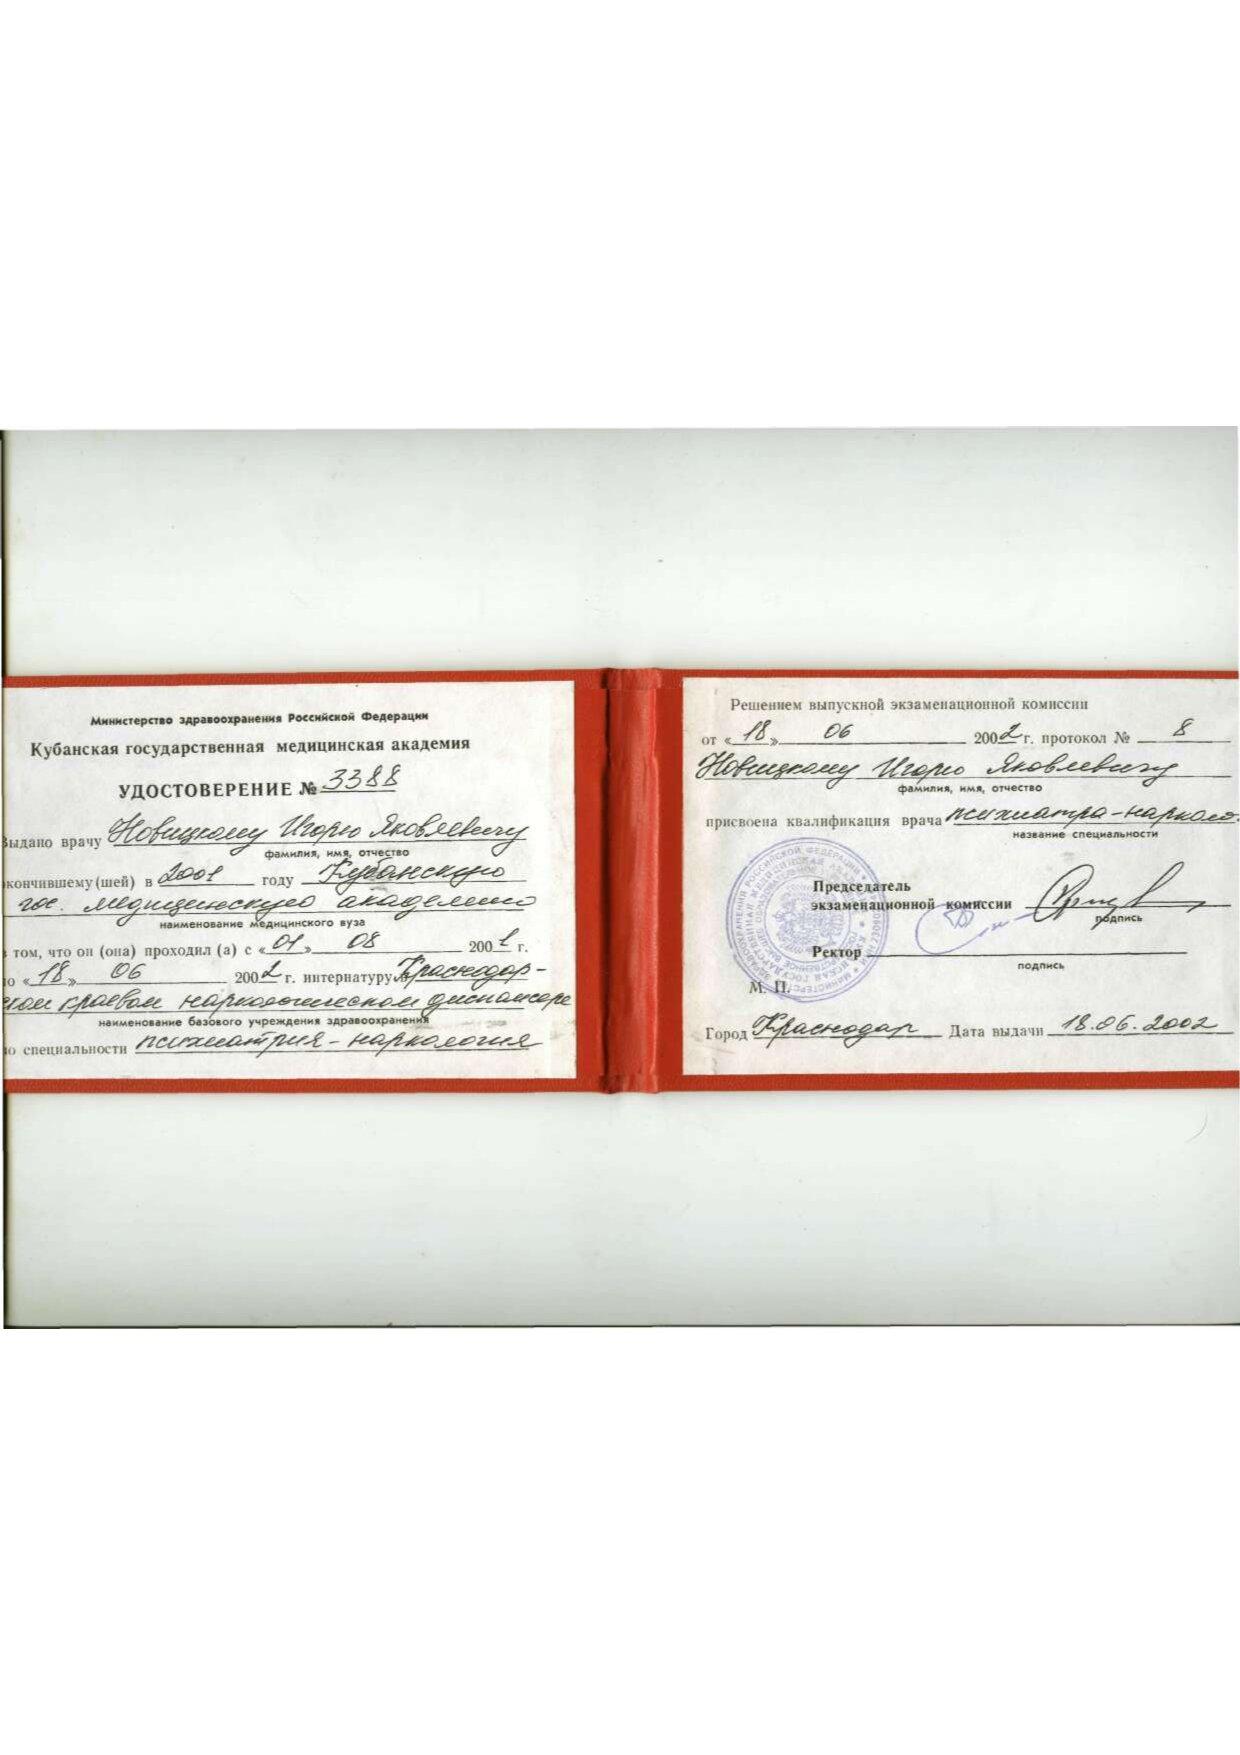 Министерство здравоохранения Российской Федерации
Кубанская государственная медицинская академия
УДОСТОВЕРЕНИЕ № 3388
Выдано врачу Новицкому Игорю Яковлевичу
фамилия, имя, отчество
кончившему (шей) в 2001 году Кубанскую
гос. медицинскую академию
наименование медицинского вуза
в том, что он (она) проходил (а) с «01» 08 2001 г.
по «18» 06 2002 г. интернатуру в Краснодар-
ском краевом наркологическом диспансере
наименование базового учреждения здравоохранения
по специальности психиатрия-наркология
Решением выпускной экзаменационной комиссии
от «18» 06 2002 г. протокол № 8
Новицкому Игорю Яковлевичу
фамилия, имя, отчество
присвоена квалификация врача психиатра-нарколо
название специальности
Председатель
экзаменационной комиссии
подпись
Ректор
подпись
М. П.
Город Краснодар Дата выдачи 18.06.2002